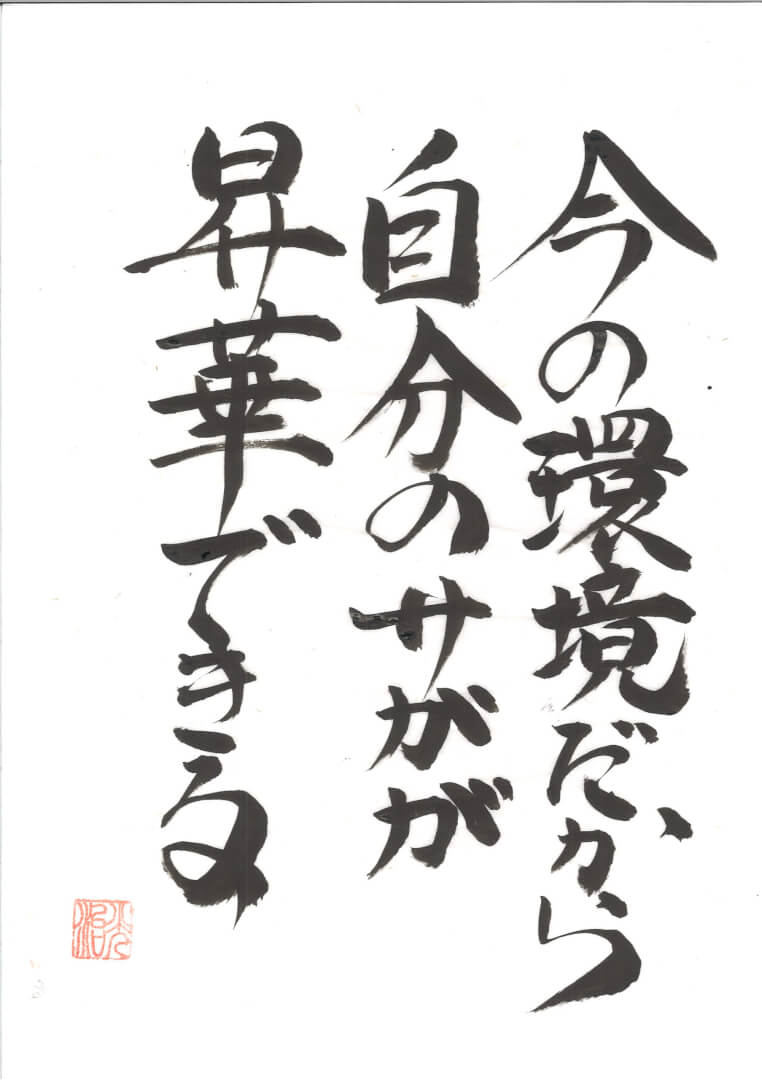 今の環境だから
自分のサガが
昇華できる